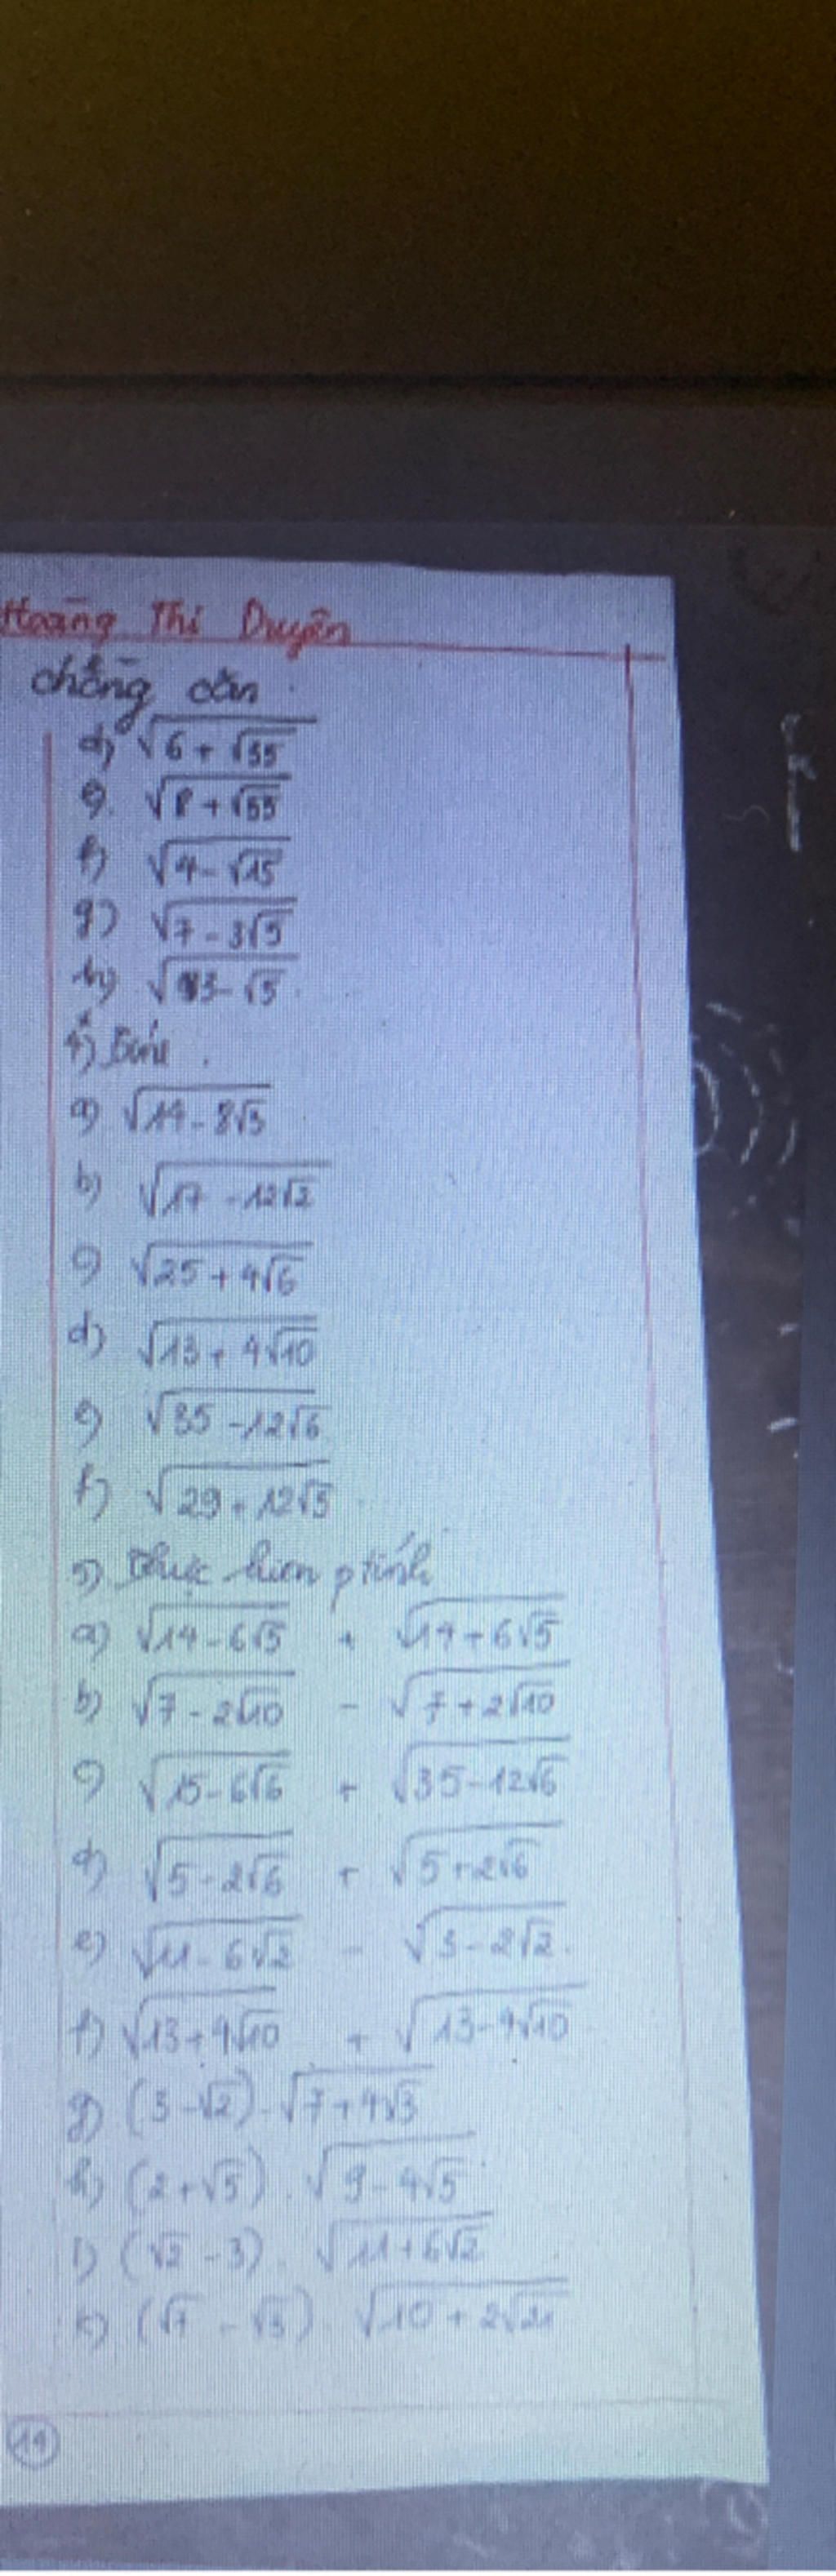 Hoàng Thị Duyên
chồng căn
d) √(6 + √35)
e) √(8 + √55)
f) √(4 - √15)
g) √(7 - 3√5)
h) √(3 - √5)
4) Tính
a) √(14 - 8√3)
b) √(17 - 12√2)
c) √(25 + 4√6)
d) √(13 + 4√10)
e) √(35 - 12√6)
f) √(29 + 12√5)
5) Thực hiện ptính
a) √(14 - 6√5) + √(14 + 6√5)
b) √(7 - 2√10) - √(7 + 2√10)
c) √(15 - 6√6) + √(35 - 12√6)
d) √(5 - 2√6) + √(5 + 2√6)
e) √(11 - 6√2) - √(3 - 2√2)
f) √(13 + 4√10) + √(13 - 4√10)
g) (3 - √2) . √(7 + 4√3)
h) (2 + √5) . √(9 - 4√5)
i) (√2 - 3) . √(11 + 6√2)
k) (√7 - √3) . √(10 + 2√21)
14